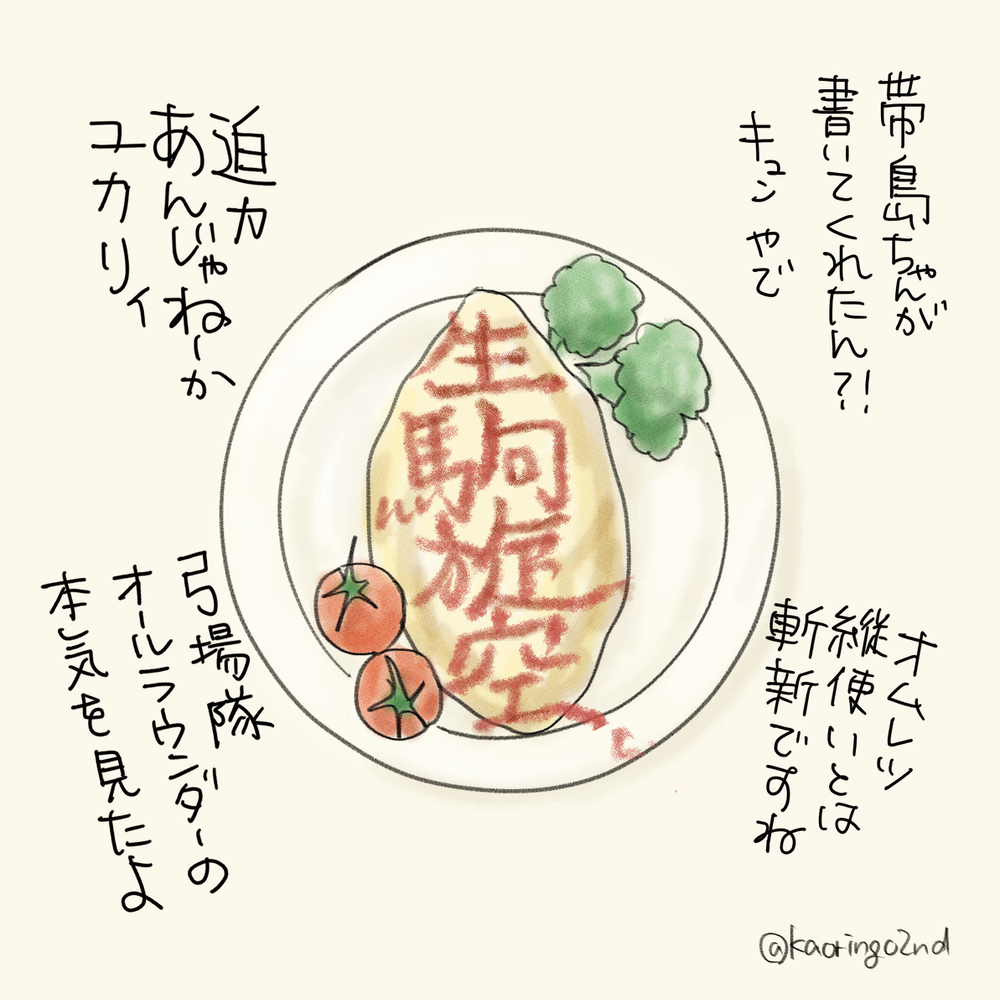 帯島ちゃんが
書いてくれたん?!
キュンやで
迫力
あんじゃねーか
ユカリィ
生駒旋空
オムレツ
縦使いとは
斬新ですね
弓場隊
オールラウンダーの
本気を見たよ
@kaoringo2nd